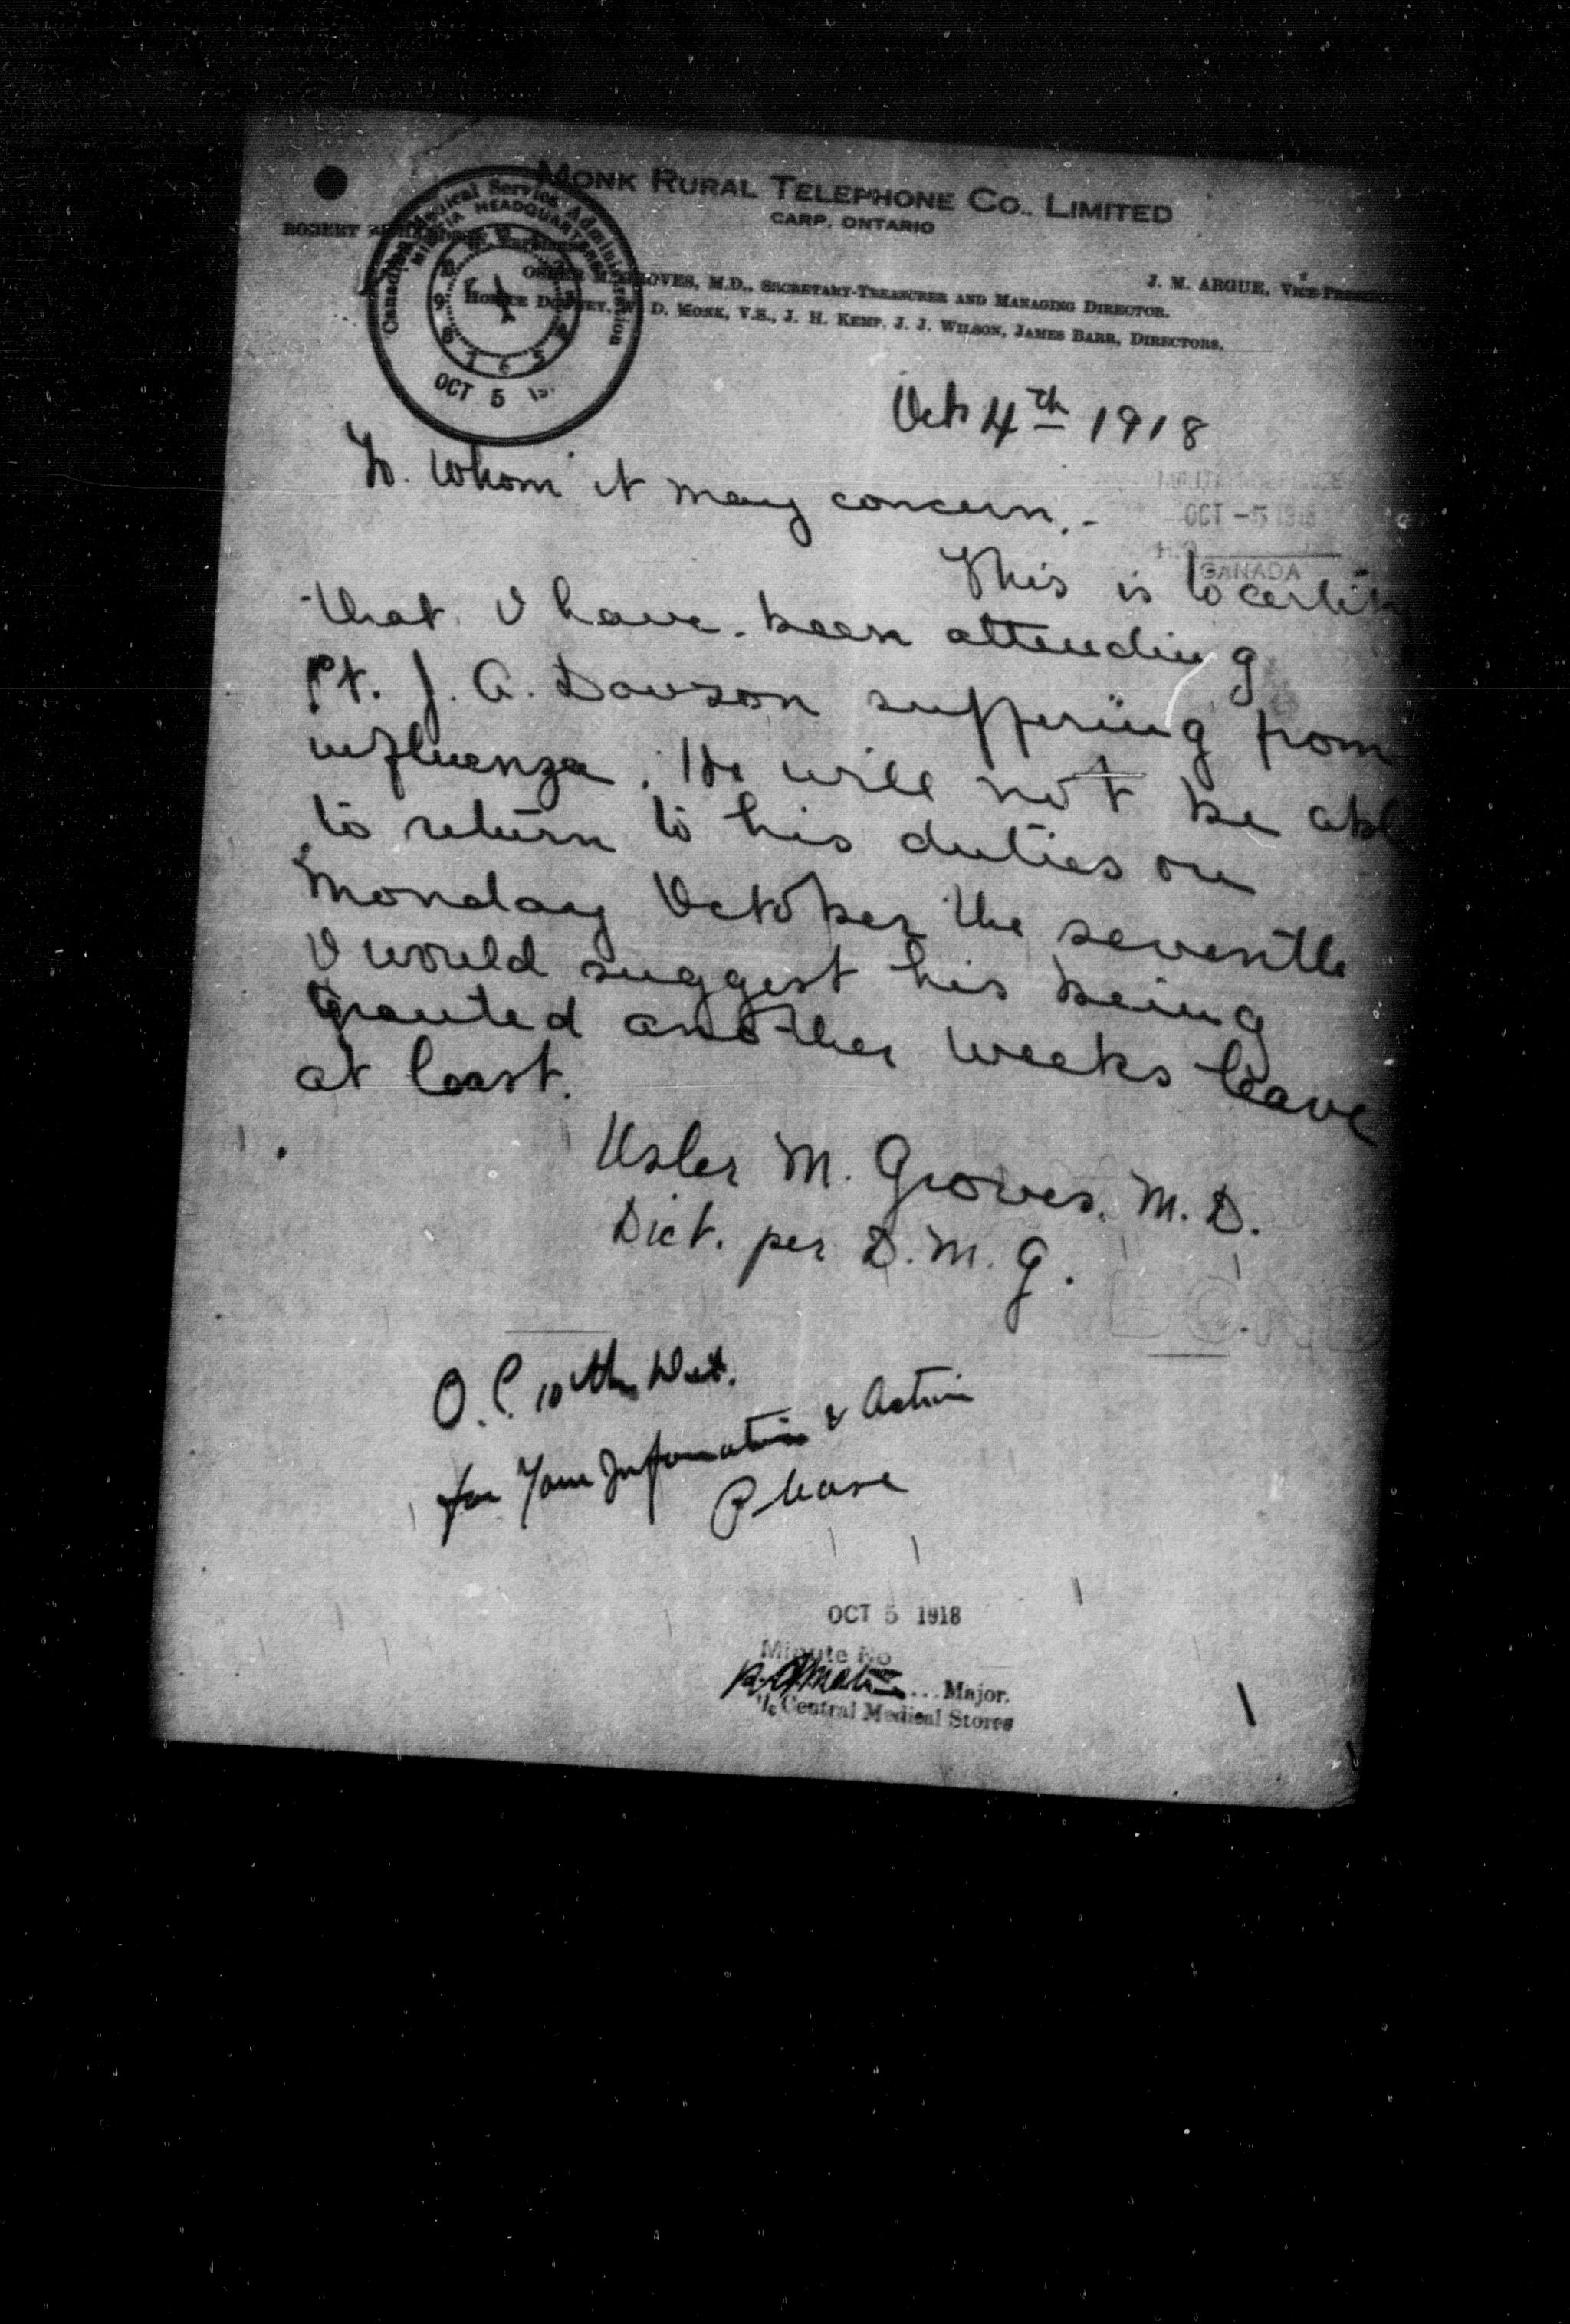 MONK RURAL TELEPHONE CO., LIMITED
CARP, ONTARIO
ROBERT
J. M. ARGUE, VICE-PRESID
M.D., SECRETARY-TREASURER AND MANAGING DIRECTOR.
D. MONK, V.S., J. H. KEMP, J. J. WILSON, JAMES BARR, DIRECTORS.
Canadian Medical Services Administration
MILITIA HEADQUARTERS
OCT 5
Oct 4th 1918
To. Whom it may concern.-
OCT -5 1918
H.Q.
CANADA
This is to certify
that I have been attending
Pt. J. A. Dawson suffering from
influenza. He will not be able
to return to his duties on
Monday October the seventh
I would suggest his being
granted another weeks leave
at least.
Osler M. Groves. M.D.
Dict. per D. M. G.
BOND
O.C. 10th Det.
for Your Information & Action
Please
OCT 5 1918
Minute No
Major.
i/c Central Medical Stores